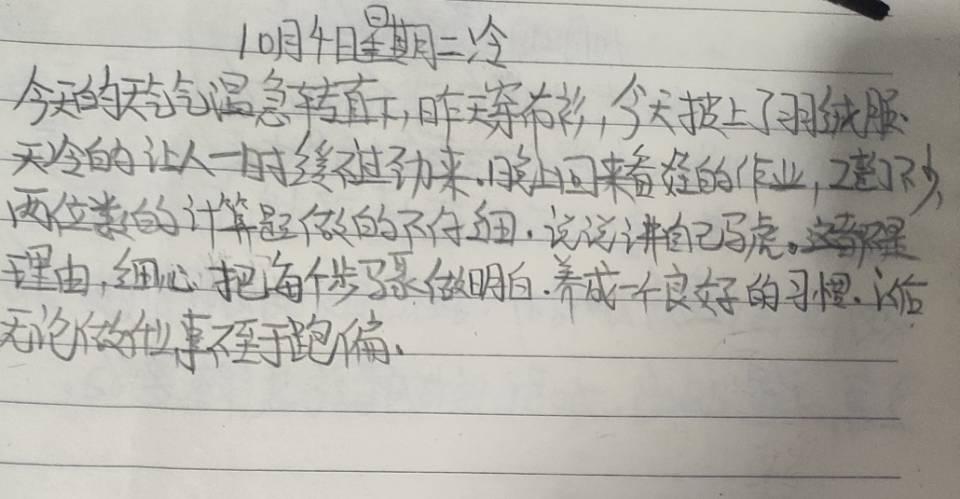 10月4日星期二冷
今天的天气气温急转直下,昨天穿布衫,今天披上了羽绒服.
天冷的让人一时缓不过劲来.晚上回来看娃的作业,错了不少,
两位数的计算题做的不仔细.说说讲自己马虎。这都不是
理由,细心把每个步骤做明白.养成一个良好的习惯.
无论做什么事不至于跑偏.